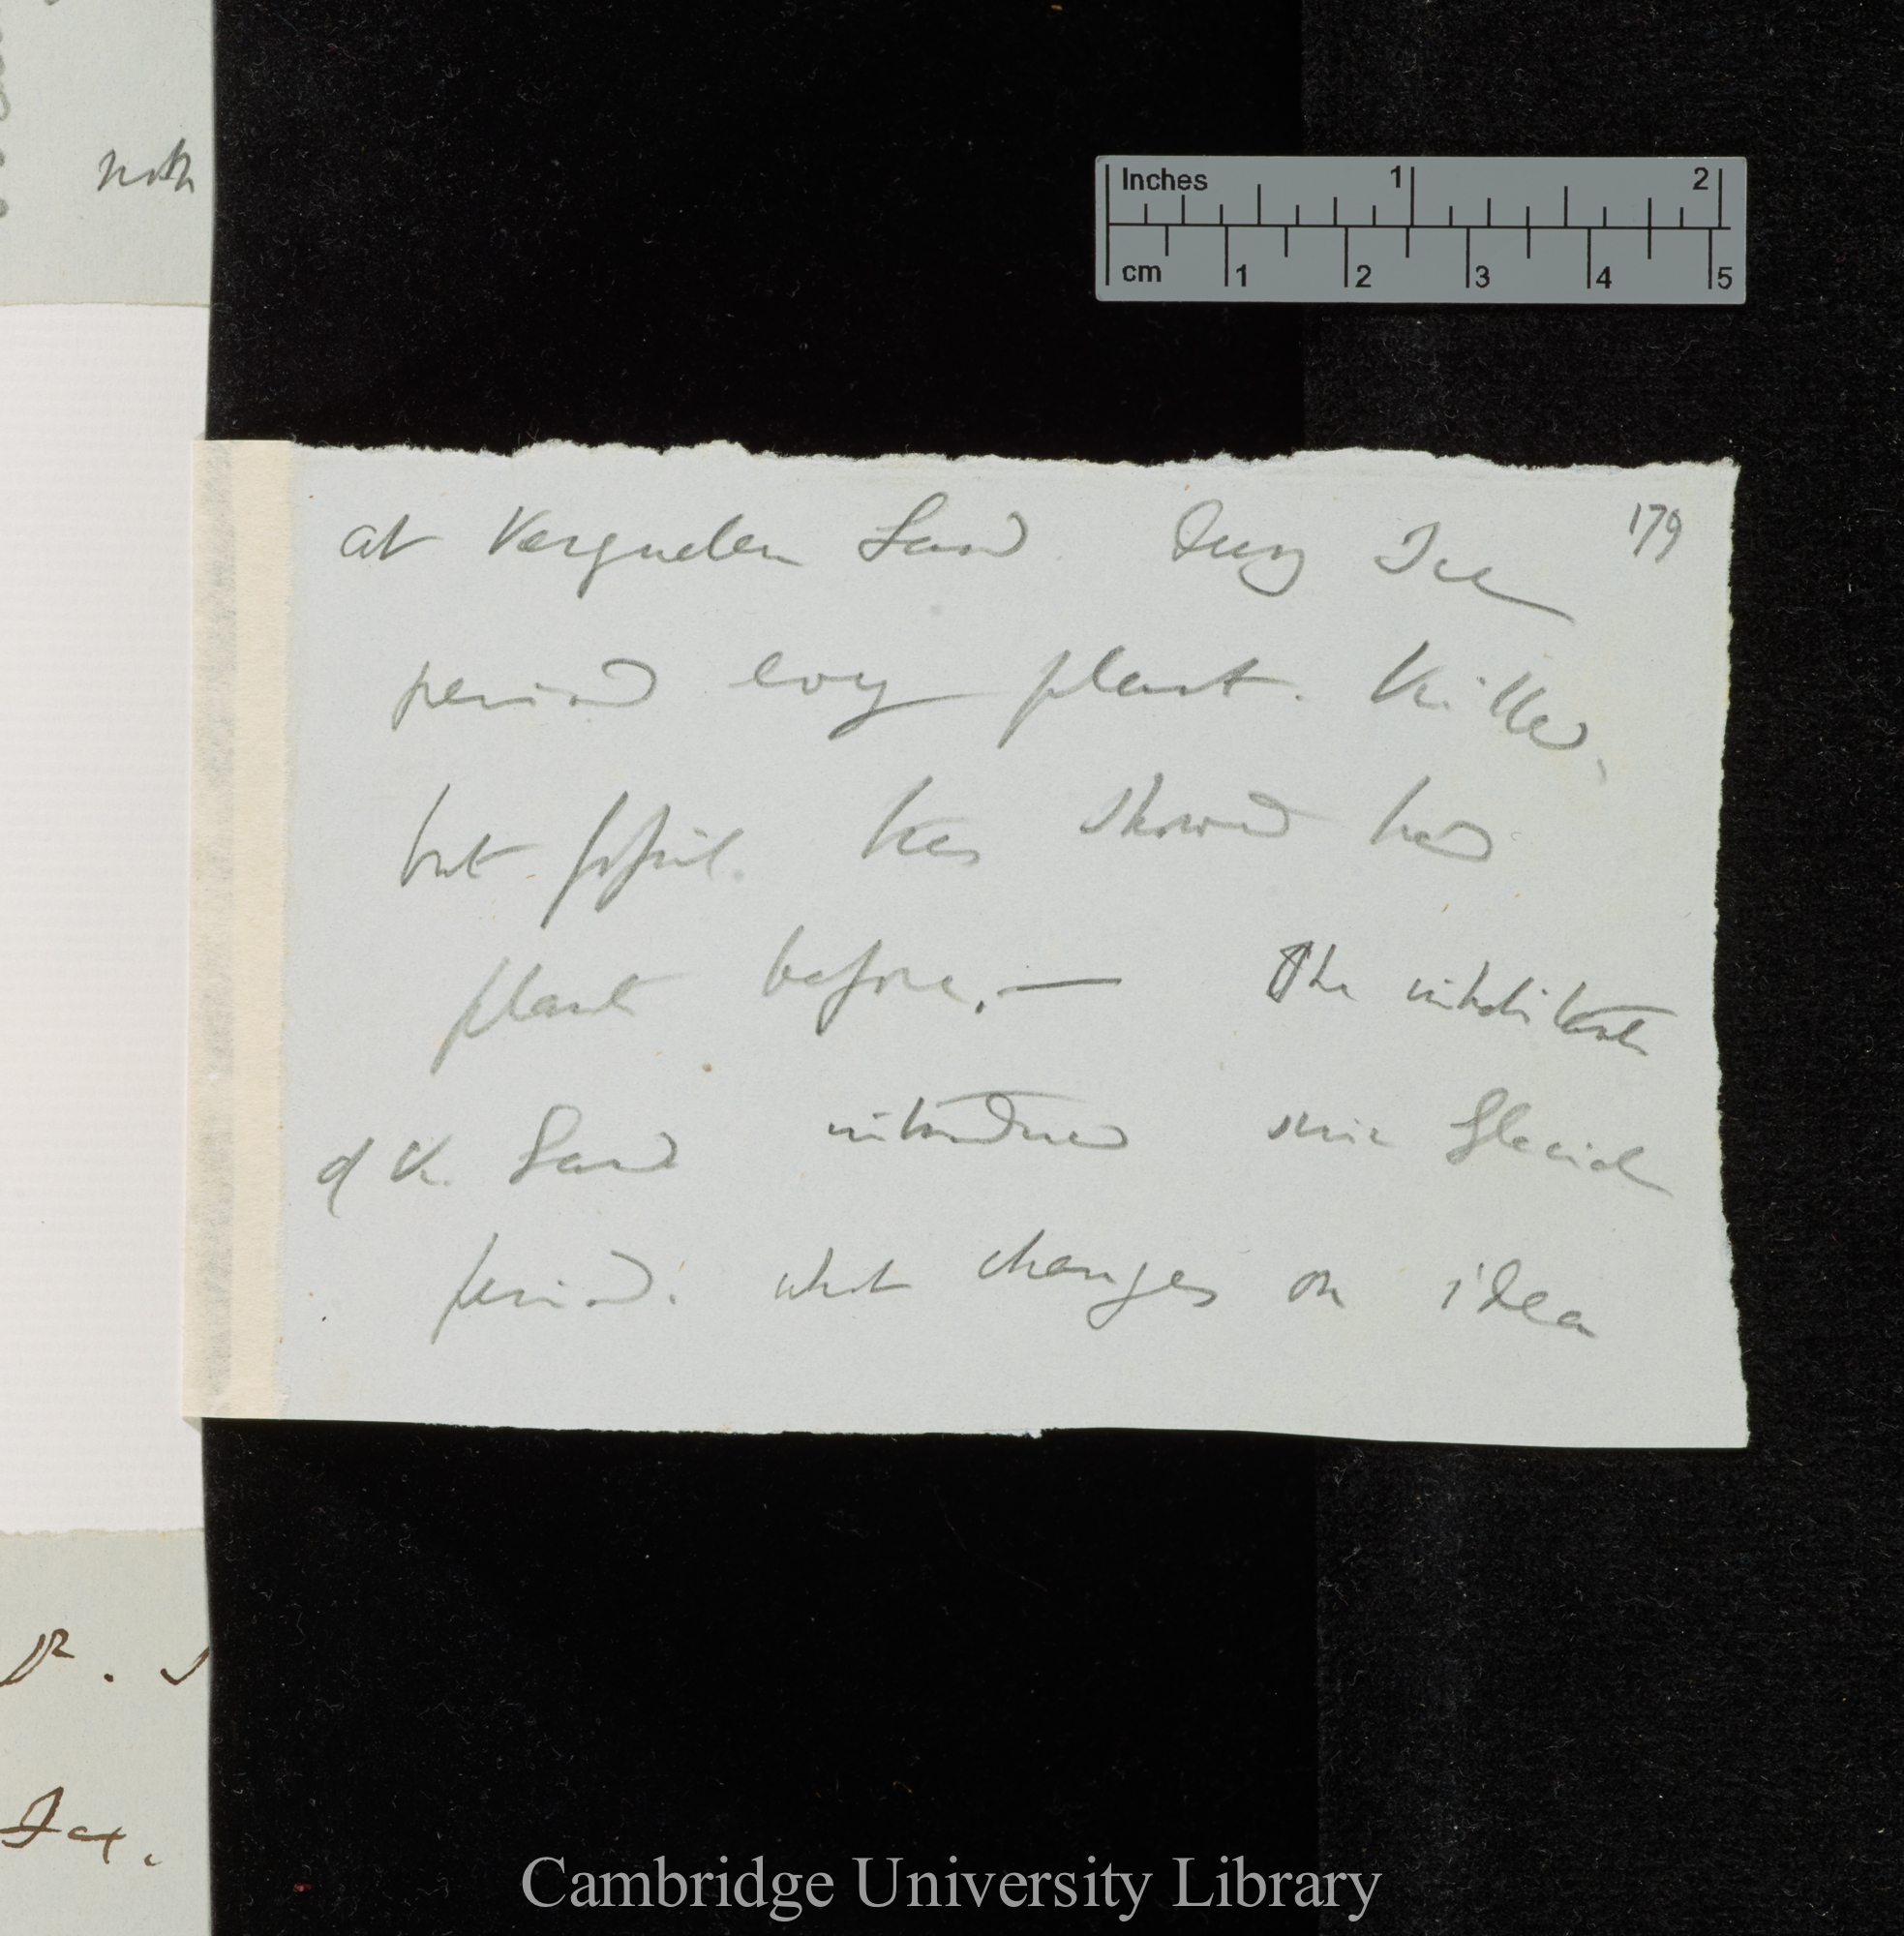 north
Inches 1 2
cm 1 2 3 4 5
179
at Kerguelen Land. During Ice
period every plant. killed,
but fossil. trees showed had
plant before. — The inhabitants
of K. Land introduced since Glacial
period. what changes on idea
Ice.
Cambridge University Library